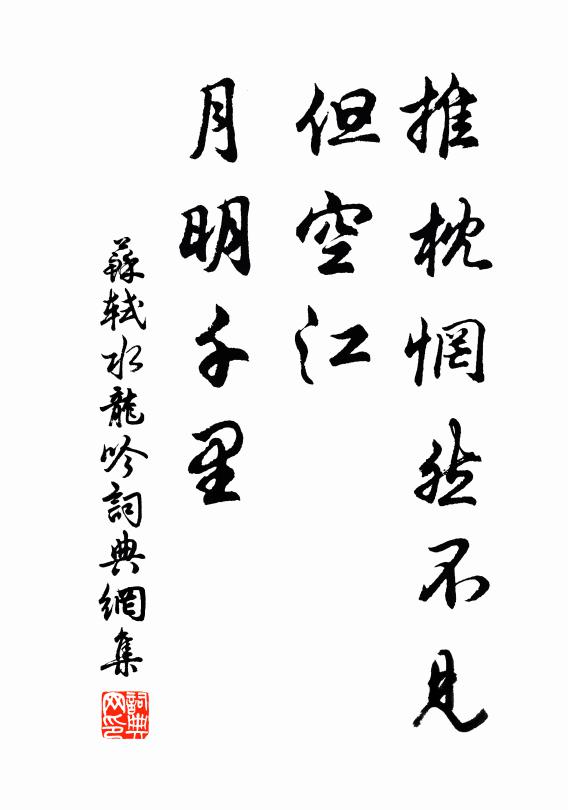 推枕惘然不見
但空江
月明千里
蘇軾水龍吟詞典網集
詞典
网印